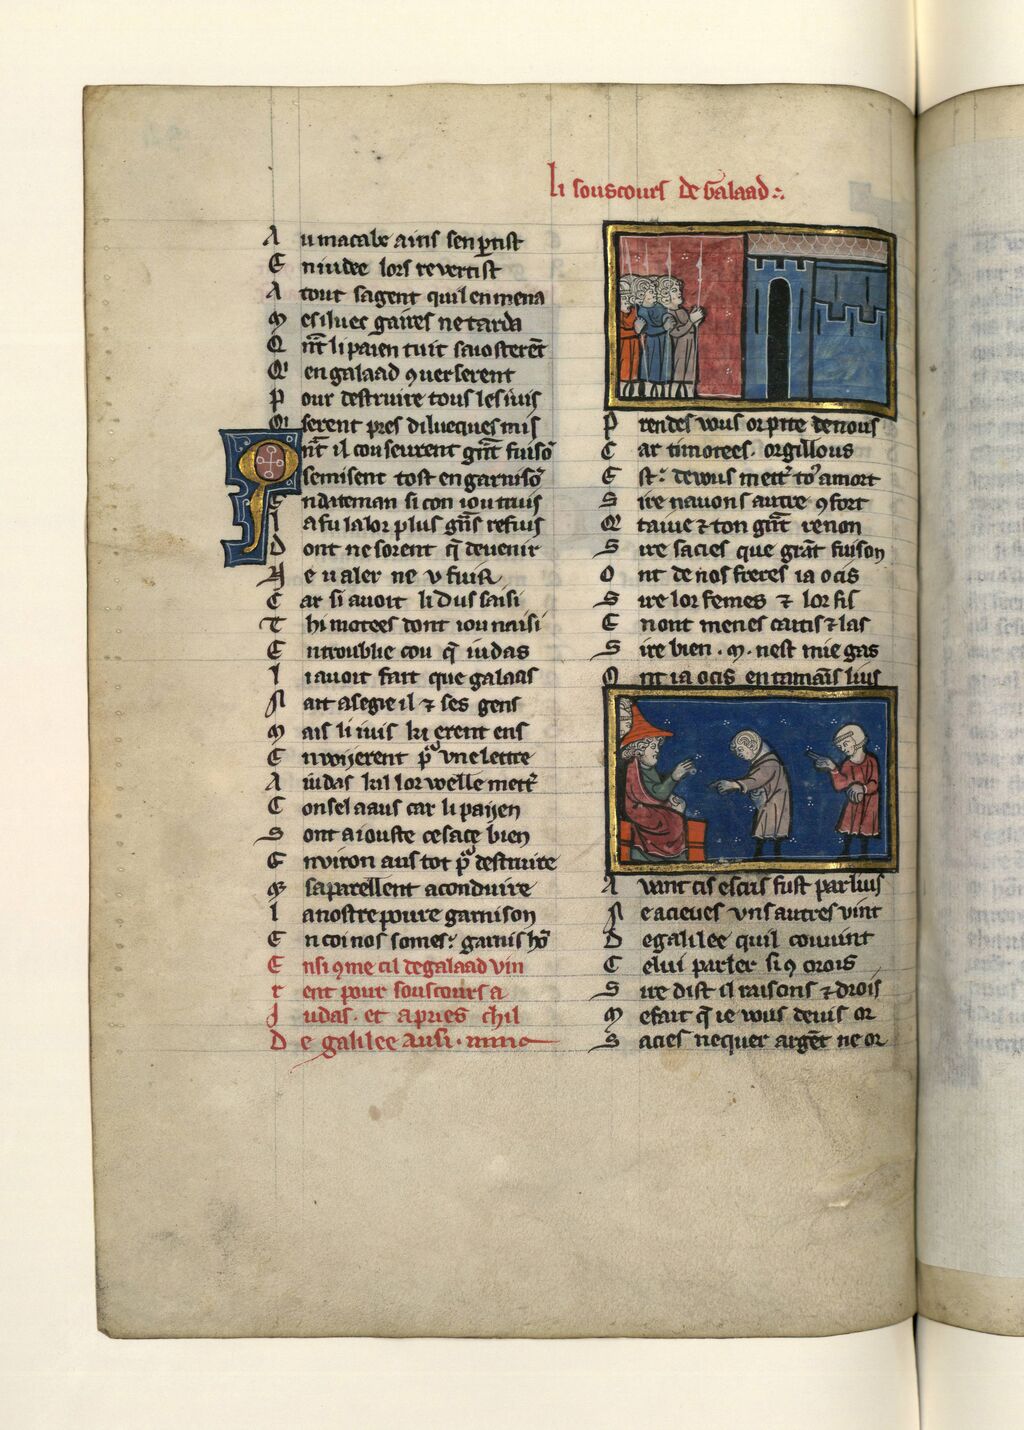 li souscours de Galaad
A u macabe ains sen
E n iudee lors revertist
A tout sagent quil en mena
M es iluec gaires ne tarda
Q nt li paien tuit
Q' en galaad 9uerserent
P our destruire tous les iuis
Q' serent pres dilueques mis
Q nt il
semisent tost en garniso
E
L a fu la lor plus gns refuis
D ont ne sorent q devenir
N e u aler ne u fuir
C ar si avoit li dus saisi
T himotees dont iou
E ntroublie cou q iudas
I i avoit fait que galaas
A it asegie il ⁊ ses gens
M ais li iuis ki erent ens
E nvoijerent vne lettre
A iudas kil lor welle mettr
C onsel a aus car li paijen
S ont aiouste
E nviron aus tot destruire
Q' saparellent a conduire
L a nostre poure garnison
E n coi nos somes garnis
E nsi 9me cil de galaad vin
r ent pour souscours a
J udas. et apries chil
D e galilee ausi.
P rendes vous or pite de nous
C ar timotees. orgillous
E st: de vous mettr a mort
S ire navons autre 9fort
Q' ta vie ⁊ ton grat renon
S ire sacies que grat fuison
O nt de nos freres ia ocis
S ire lor femes ⁊ lor fis
E n ont menes caitis ⁊ las
S ire bien .M. nest mie gas
O nt ia ocis en
A vant cis escris fust par lius
N e acieves vns autres vint
D e galilee quil couvint
C elui parler si 9 crois
S ire dist il raisons ⁊ drois
M e fait q ie vous devis or
S acies ne quer argent ne or